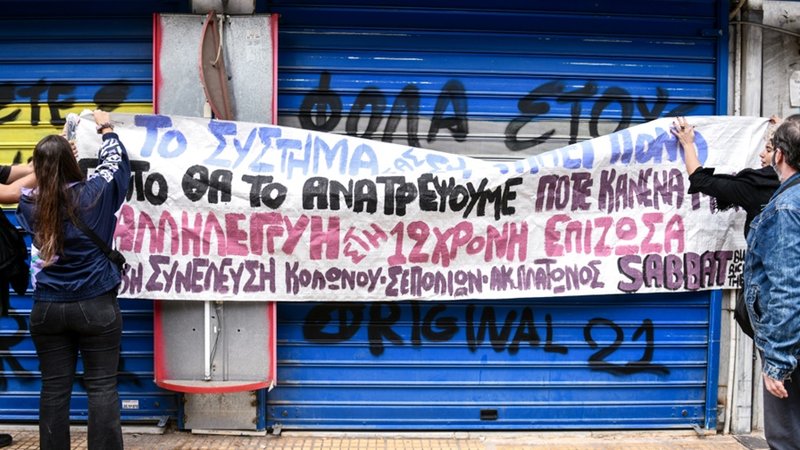 ΦΟΛΑ ΣΤΟΥΣ
ΤΟ ΣΥΣΤΗΜΑ
ΘΑ ΤΟ ΑΝΑΤΡΕΨΟΥΜΕ ΠΟΤΕ ΚΑΝΕΝΑ
ΑΛΛΗΛΕΓΓΥΗ ΣΤΗ 12ΧΡΟΝΗ ΕΠΙΖΩΣΑ
ΣΥΝΕΛΕΥΣΗ ΚΟΛΩΝΟΥ-ΣΕΠΟΛΙΩΝ-ΑΚ.ΠΛΑΤΩΝΟΣ SABBAT
ORIGINAL 21